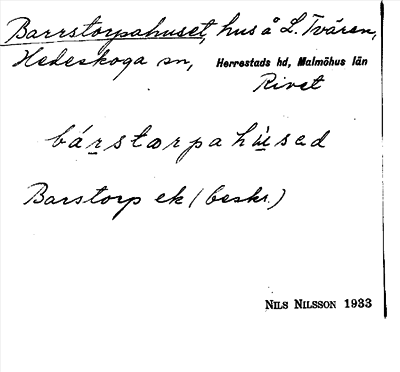 Barrstorpahuset, hus å L. Tvären,
Hedeskoga sn, Herrestads hd, Malmöhus län
Rivet
bárstorpahùsad
Barstorp ek (beskr.)
NILS NILSSON 1933